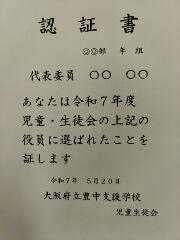 認証書
◎◎部 年 組
代表委員 ○○ ○○
あなたは令和7年度
児童・生徒会の上記の
役員に選ばれたことを
証します
令和7年 5月20日
大阪府立豊中支援学校
児童生徒会